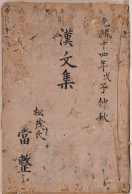 光緒十四年戊子仲秋
漢文集
當整